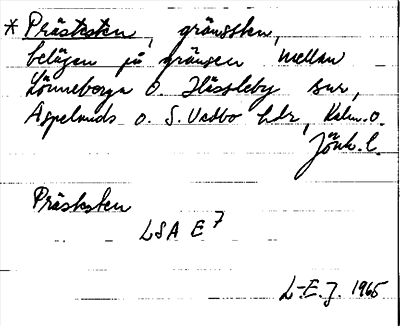 * Präststen, gränssten,
belägen på gränsen mellan
Lönneberga o. Hässleby snr,
Aspelands o. S. Vedbo hdr, Kalm. o.
Jönk. l.
Präststen
LSA E 7
L-E. J. 1965